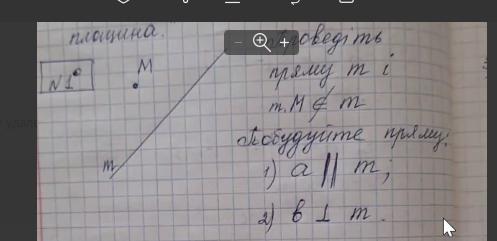 площина.
N1°
M
m
проведіть
пряму m і
т. M ∉ m
Побудуйте пряму:
1) a || m;
2) в ⊥ m.